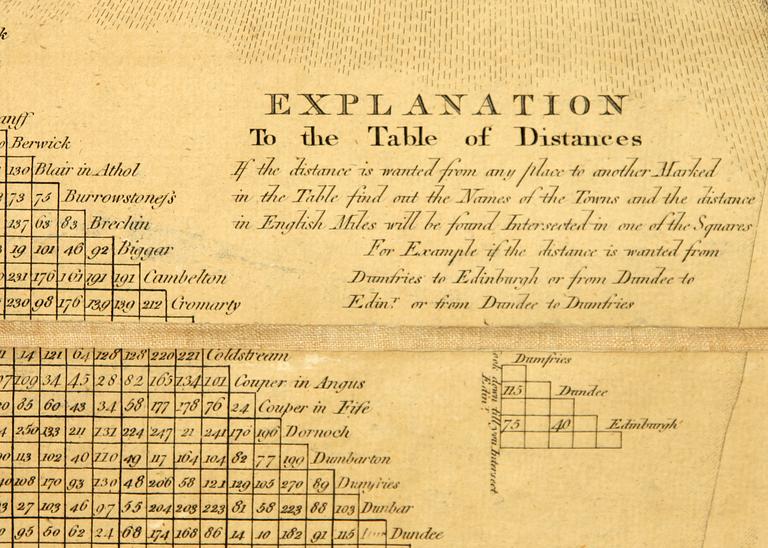 EXPLANATION
To the Table of Distances
If the distance is wanted from any place to another Marked
in the Table find out the Names of the Towns and the distance
in English Miles will be found Intersected in one of the Squares
For Example if the distance is wanted from
Dumfries to Edinburgh or from Dundee to
Edinr. or from Dundee to Dumfries
Berwick
130 Blair in Athol
73 75 Burrowstoness
137 63 83 Brechin
19 101 46 92 Biggar
231 176 161 191 191 Cambelton
230 98 176 139 139 212 Cromarty
14 121 64 128 128 220 221 Coldstream
109 34 45 28 82 165 134 101 Couper in Angus
85 60 43 34 58 177 178 76 24 Couper in Fife
250 133 211 131 224 247 21 241 170 196 Dornoch
113 102 40 110 49 117 164 104 82 77 199 Dumbarton
108 170 93 130 48 206 58 121 129 105 270 89 Dumfries
27 103 46 97 55 204 203 223 81 58 223 88 103 Dunbar
95 50 62 24 68 174 168 86 14 10 182 91 115 Dundee
Dumfries
115 Dundee
75 40 Edinburgh
look down till you Intersect
Edinr.